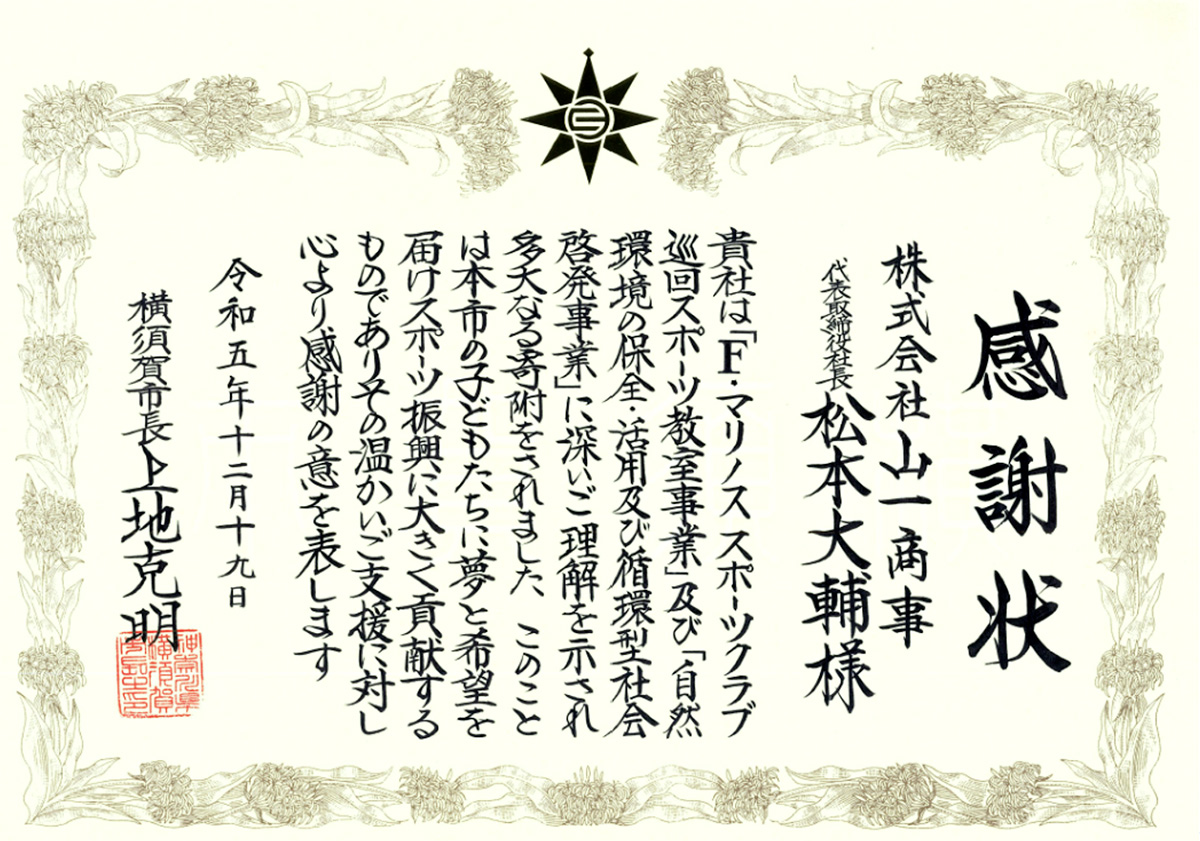 感謝状
株式会社山一商事
代表取締役社長松本大輔様
貴社は「F・マリノススポーツクラブ
巡回スポーツ教室事業」及び「自然
環境の保全・活用及び循環型社会
啓発事業」に深いご理解を示され
多大なる寄附をされました、このこと
は本市の子どもたちに夢と希望を
届けスポーツ振興に大きく貢献する
ものでありその温かいご支援に対し
心より感謝の意を表します
令和五年十二月十九日
横須賀市長上地克明